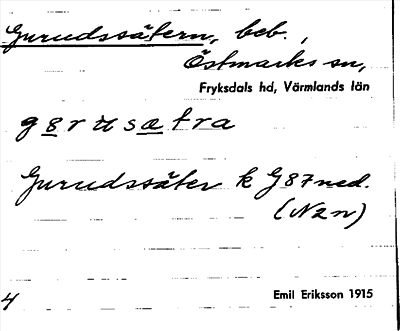 Gurudssätern, beb.,
Östmarks sn,
Fryksdals hd, Värmlands län
gɵrusætra
Gurudssäter k G 87 ned.
(N2n)
4
Emil Eriksson 1915